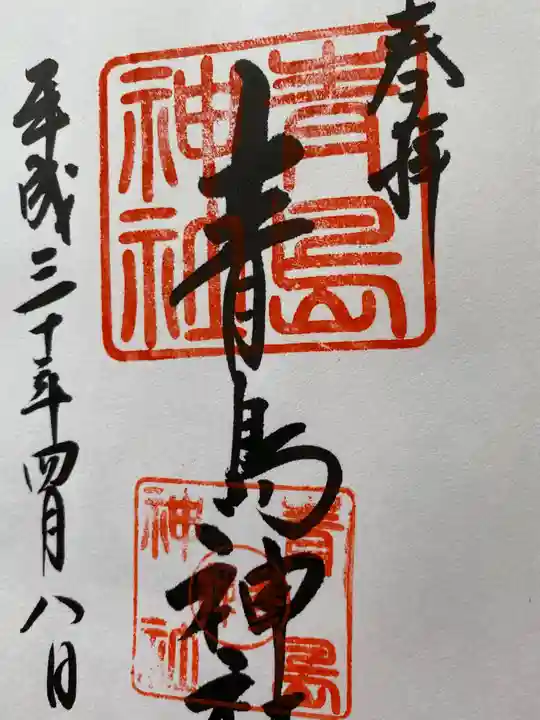 奉拝
青島神社
青島
神社
青島
神社
平成三十年四月八日